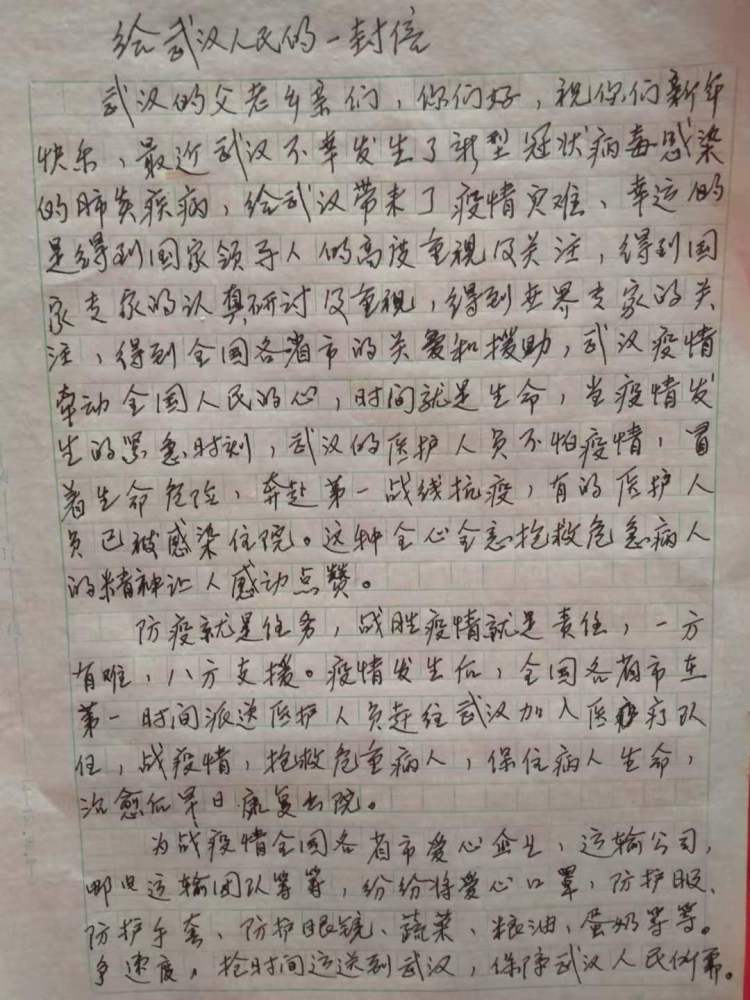 给武汉人民的一封信
武汉的父老乡亲们，你们好，祝你们新年
快乐、最近武汉不幸发生了新型冠状病毒感染
的肺炎疾病，给武汉带来了疫情灾难、幸运的
是得到国家领导人的高度重视及关注，得到国
家专家的认真研讨及重视，得到世界专家的关
注，得到全国各省市的关爱和援助，武汉疫情
牵动全国人民的心，时间就是生命，当疫情发
生的紧急时刻，武汉的医护人员不怕疫情，冒
着生命危险，奔赴第一战线抗疫，有的医护人
员已被感染住院。这种全心全意抢救危急病人
的精神让人感动点赞。
防疫就是任务，战胜疫情就是责任，一方
有难，八方支援。疫情发生后，全国各省市在
第一时间派送医护人员赶往武汉加入医疗队
伍，战疫情，抢救危重病人，保住病人生命，
治愈后早日康复出院。
为战疫情全国各省市爱心企业，运输公司，
邮电运输团队等等，纷纷将爱心口罩，防护服、
防护手套、防护眼镜、蔬菜、粮油、蛋奶等等。
争速度，抢时间运送到武汉，保障武汉人民所需。